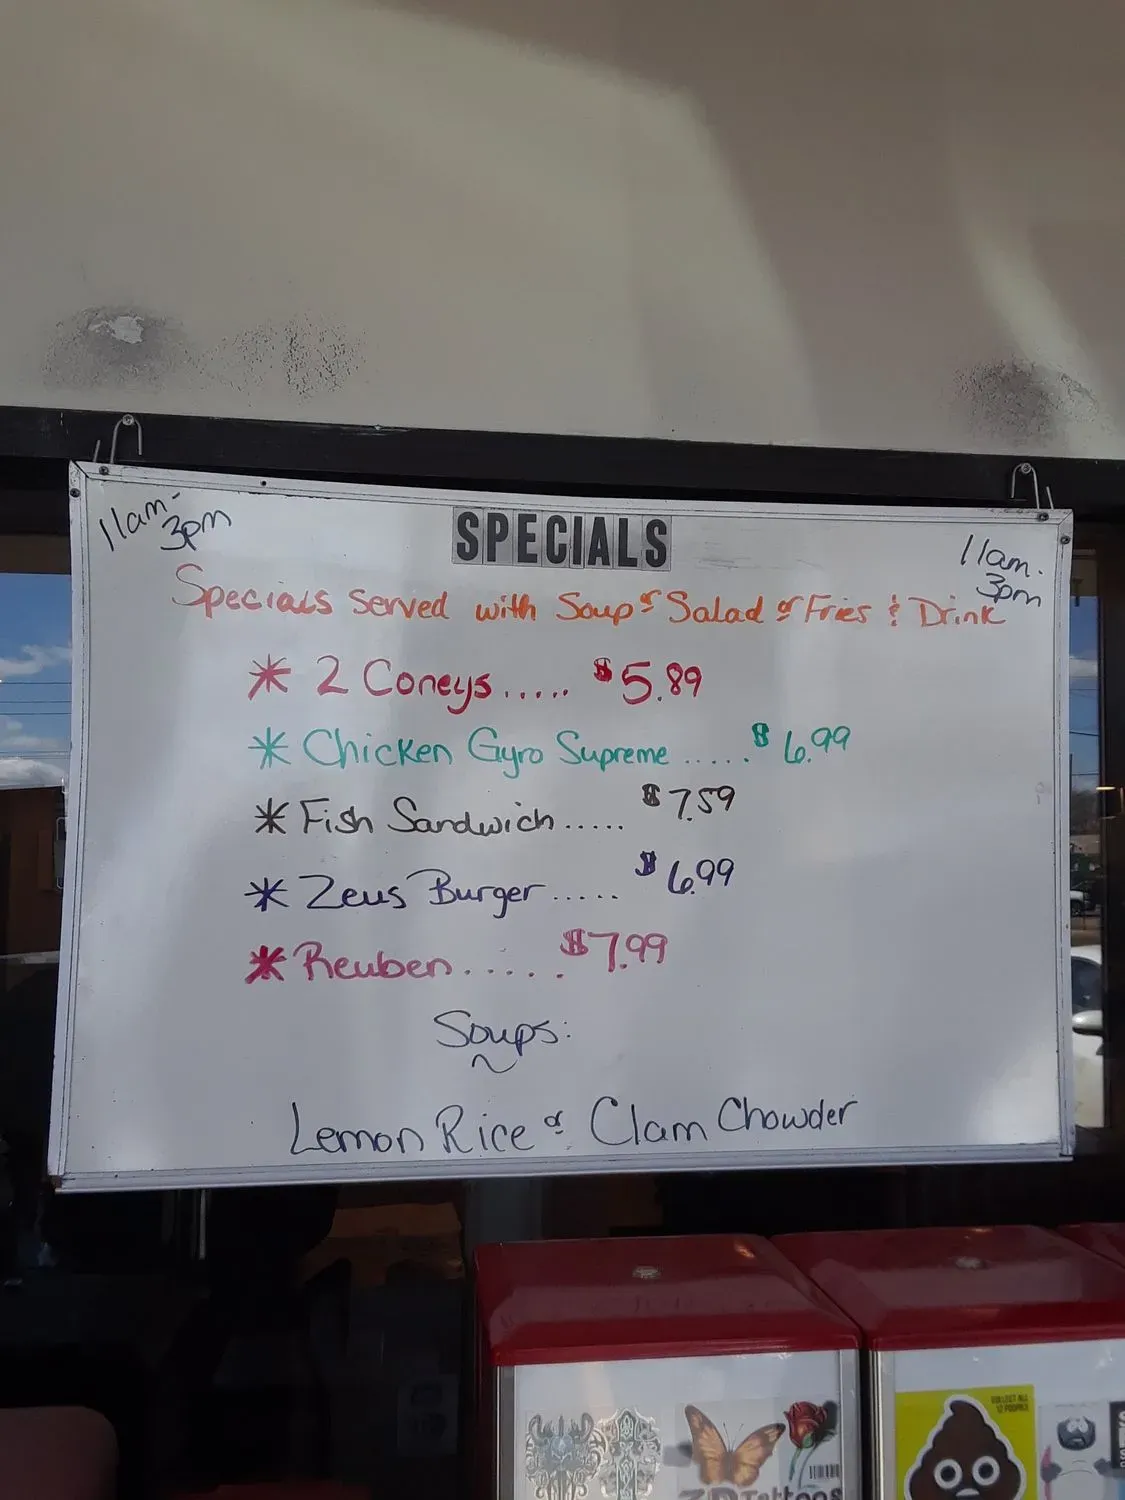 11am-
3pm
SPECIALS
11am-
3pm
Specials Served with Soup or Salad or Fries & Drink
* 2 Coneys..... $5.89
* Chicken Gyro Supreme ..... $6.99
* Fish Sandwich..... $7.59
* Zeus Burger..... $6.99
* Reuben..... $7.99
Soups:
Lemon Rice or Clam Chowder
COLLECT ALL
12 POOPS!
3D Tattoos